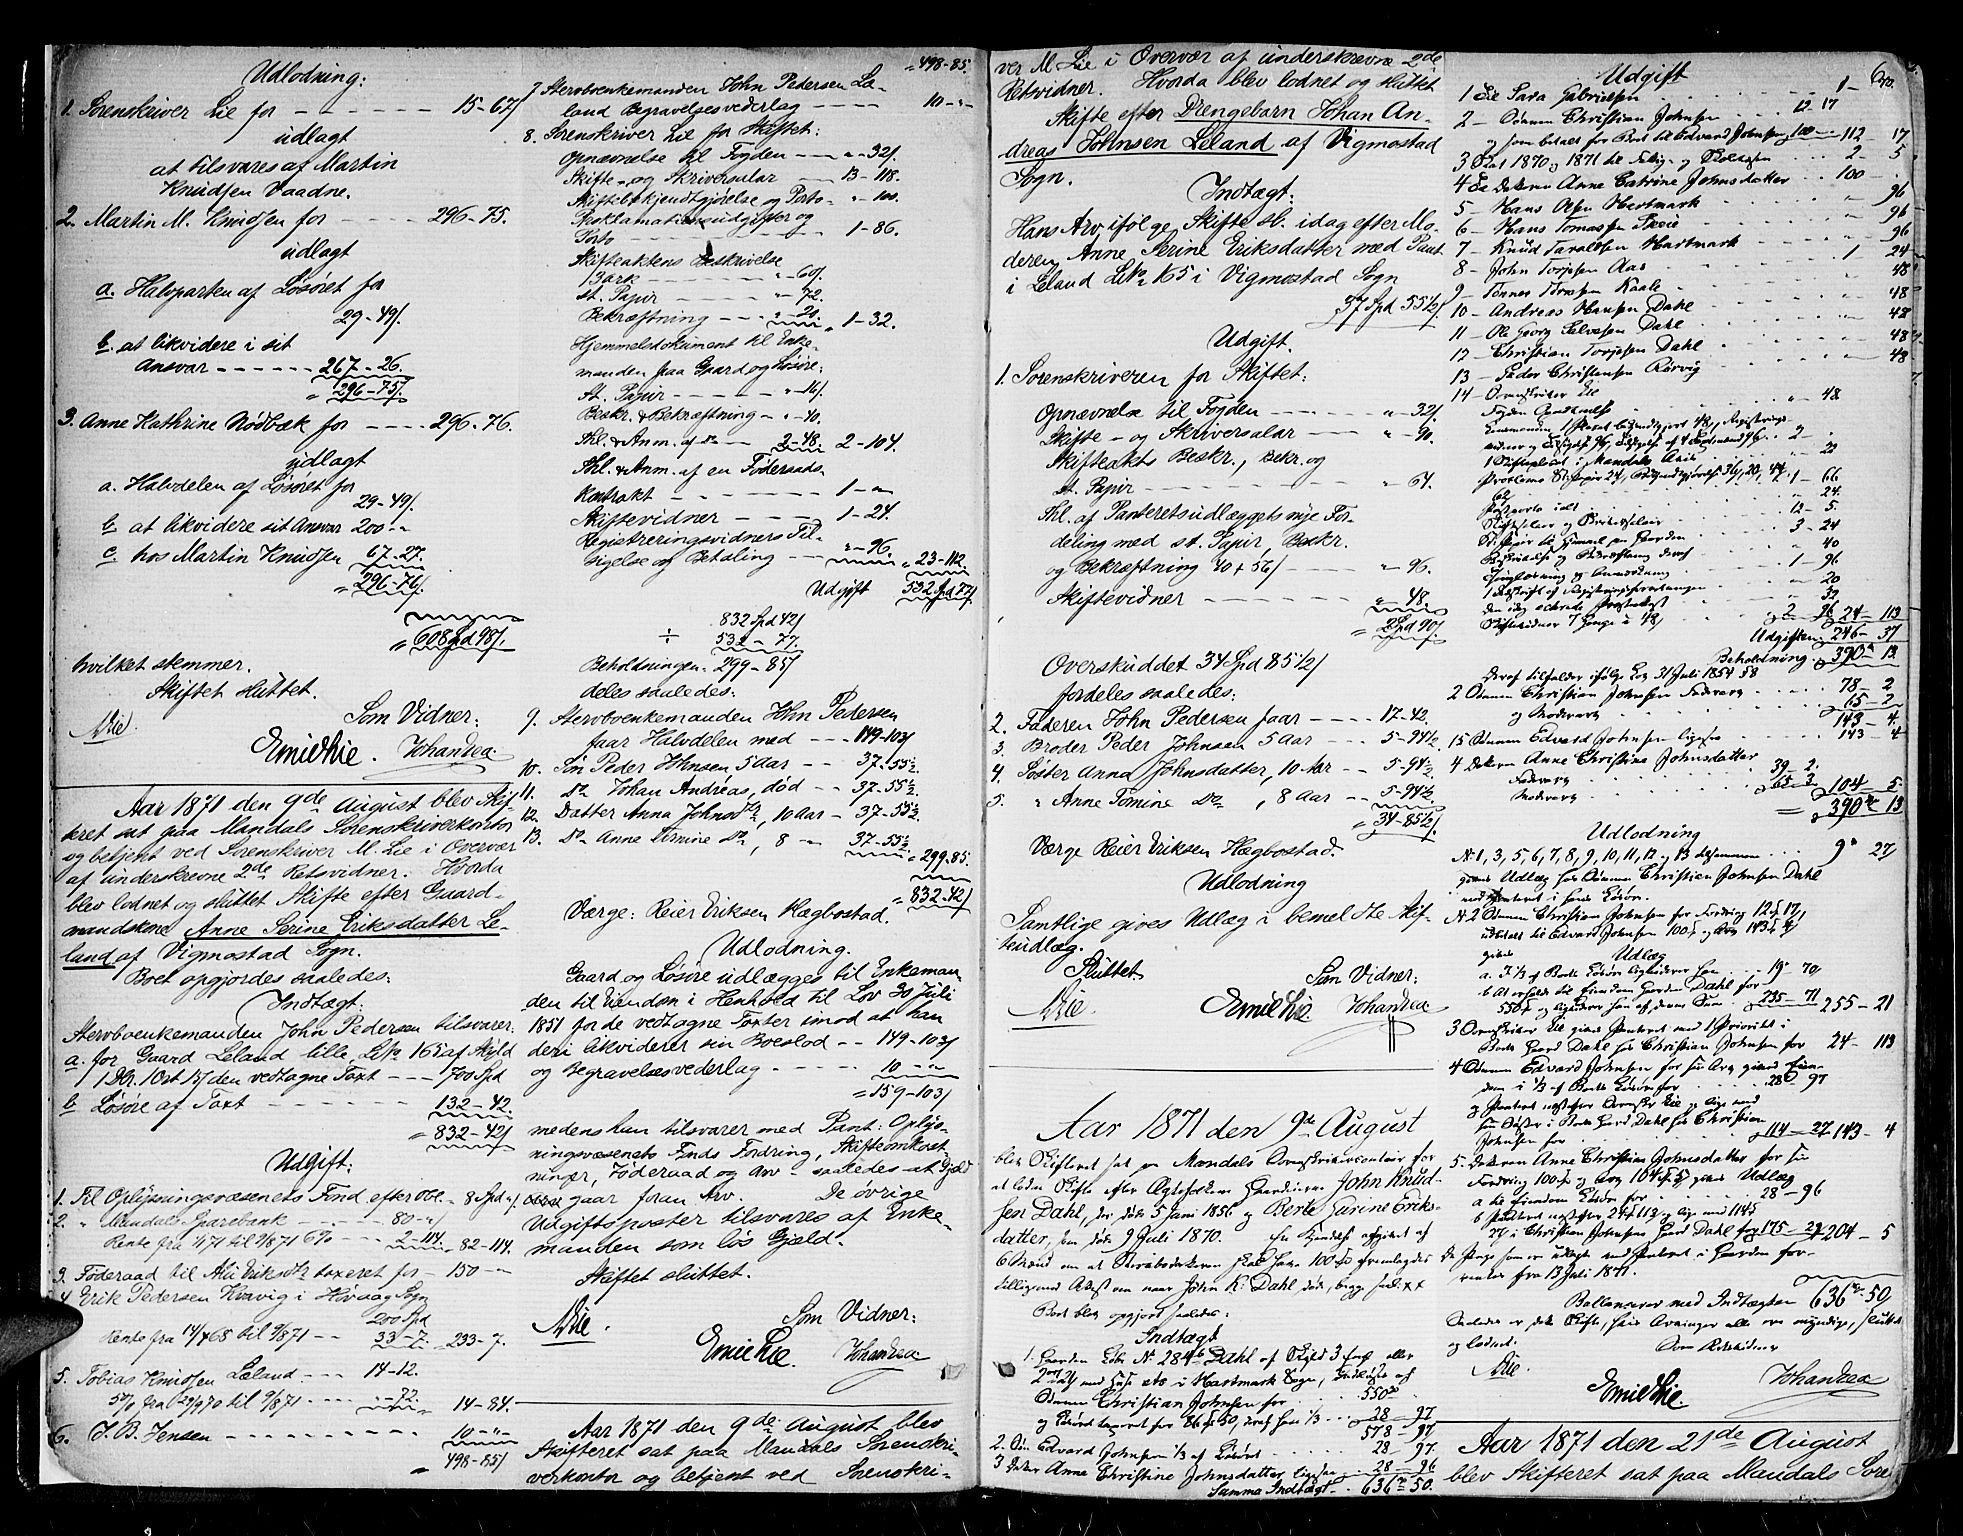 Udlodning:
1. Sorenskriver Lie for - - - - 15-67/
udlagt
at tilsvares af Martin
Knudsen Vaadne.
2. Martin M. Knudsen for - - - - 296-75.
udlagt
a. Halvparten af Løsøret for
29-49/.
b. at likvidere i sit
Ansvar - - - - - - 267-26.
= 296-75/.
3. Anne Kathrine Nødbæk for - - - - 296-76.
udlagt
a. Halvdelen af Løsøret for
29-49/.
b at likvidere sit Ansvar 200 " "
c. hos Martin Knudsen 67-27.
= 296-76/.
= 608 Spd 98/.
hvilket stemmer.
Skiftet sluttet.
MLie.
Som Vidner:
Emil Lie. Johan Lea.
Aar 1871 den 9de August blev Skif-
teret sat paa Mandals Sorenskriverkontor
og betjent ved Sorenskriver M. Lie i Overvær
af underskrevne 2de Retsvidner. Hvorda
blev lodnet og sluttet Skifte efter Gaard-
mandskone Anne Serine Eriksdatter Le-
land af Vigmostad Sogn.
Boet opgjordes saaledes:
Indtægt:
Stervboenkemanden John Pedersen tilsvarer:
a. for Gaard Leland lille, L.No 165 af Skyld
1 Dlr. 1 Ort 15/ den vedtagne Taxt - - - 700 Spd
b Løsøre af Taxt - - - - 132-42.
= 832-42/
Udgift:
1. Til Oplysningsvæsenets Fond efter Obl. - 8 Spd "/
2. " Mandals Sparebank - - - - 80-"/
Rente fra 1/1 71 til 9/8 71 6% - - 2-114. 82-114.
3. Føderaad til Ali Eriksdtr taxeret for - 150-"
4 Erik Pedersen Kvavig i Hovdag Sogn
200 Spd
Rente fra 14/4 68 til 9/8 71 - - 33-7. 233-7.
5. Tobias Knudsen Leland - - - 14-12.
5% fra 29/9 70 til 9/8 71 - - - "-72. 14-84.
6. J. B. Jensen - - - - - - - - 10-"-
= 498-85/
= 498-85.
7 Stervboenkemanden John Pedersen Le-
land Begravelsesvederlag - - - - 10-"
8. Sorenskriver Lie for Skiftet:
Opnævnelse til Fogden - - - "-32/.
Skifte- og Skriversalær - - - 13-118.
Skiftebekjendtgjørelse og Porto - "-100.
Proklamationsudgifter og
Porto - - - - - - - 1-86.
Skifteaktens Beskrivelse
1 Bark - - - - - - "-60/.
st. Papir - - - - - "-72.
Bekræftning - - - "-20. 1-32.
Hjemmelsdokument til Enke-
manden paa Gaard og Løsøre:
St. Papir - - - - - - "-16/.
Beskr. & Bekræftning - "-40.
Thl. & Anm. af do - - - 2-48. 2-104.
Thl. & Anm. af en Føderaads-
kontrakt - - - - - - 1-"
Skiftevidner - - - - 1-24.
Registreringsvidners Til-
sigelse og Betaling - - - "-96. = 23-112.
Udgift 532 Spd 77/
832 Spd 42/
÷ 532-77.
Beholdningen - 299-85/
deles saaledes:
9. Stervboenkemanden John Pedersen
faar Halvdelen med - - - 149-103/
10. Søn Peder Johnsen 5 Aar - - 37-55½.
11. Do Johan Andreas, død - - 37-55½.
12. Datter Anna Johnsdtr, 10 Aar - 37-55½.
13. Do Anne Tomine Do, 8 " 37-55½.
= 299-85.
= 832-42/
Værge: Reier Eriksen Hægbostad.
Udlodning.
Gaard og Løsøre udlægges til Enkeman-
den til Eiendom i Henhold til Lov 30 Juli
1851 for de vedtagne Taxter imod at han
deri likviderer sin Boeslod - - 149-103/
og Begravelsesvederlag - - - - 10-"
= 159-103/
medens han tilsvarer med Pant: Oplys-
ningsvæsenets Fonds Fordring, Skifteomkost-
ninger, Føderaad og Arv - saaledes at Gjeld
gaar foran Arv. De øvrige
Udgiftsposter tilsvares af Enke-
manden som løs Gjæld.
Skiftet sluttet.
MLie.
Som Vidner:
Emil Lie. Johan Lea.
Aar 1871 den 9de August blev
Skifteret sat paa Mandals Sorenskri-
verkontor og betjent ved Sorenskri-
ver M Lie i Overvær af underskrevne 2de
Retsvidner. Hvorda blev lodnet og sluttet
Skifte efter Drengebarn Johan An-
dreas Johnsen Leland af Vigmostad
Sogn.
Indtægt:
Hans Arv ifølge Skifte sl. idag efter Mo-
deren Anne Serine Eriksdatter med Pant
i Leland L.No 165 i Vigmostad Sogn
37 Spd 55½/
Udgift.
1. Sorenskriveren for Skiftet:
Opnævnelse til Fogden - - - - "-32/.
Skifte- og Skriversalær - - - "-90.
Skifteakts Beskr., Bekr. og
st. Papir - - - - - - - "-64.
Thl. af Panteretsudlæggets nye For-
deling med st. Papir, Beskr.
og Bekræftning 40 + 56/ - - - "-96.
Skiftevidner - - - - - - "-48.
= 2 Spd 90/
Overskuddet 34 Spd 85½/
fordeles saaledes:
2. Faderen John Pedersen faar - - - 17-42.
3. Broder Peder Johnsen 5 Aar - - 5-94½
4. Søster Anna Johnsdatter, 10 Aar - 5-94½
5. " Anne Tomine Do, 8 Aar - - 5-94½
= 34-85½/.
Værge Reier Eriksen Hægbostad.
Udlodning
Samtlige gives Udlæg i bemeldte Skif-
teudlæg.
Sluttet.
MLie.
Som Vidner:
Emil Lie. Johan Lea.
Aar 1871 den 9de August
blev Skifteret sat paa Mandals Sorenskrivercontoir for
at lodne Skifte efter Ægtefolkene Gaardmand John Knud-
sen Dahl, der døde 5 Juni 1856 og Berte Gurine Eriks-
datter, som døde 9 Juli 1870.
Boet blev opgjort saaledes:
Indtægt
1. Gaarden Løbe No 284b Dahl af Skyld 3 eller
Sønnen Christian Johnsen for - - - 550
og Løsøret taxeret for 86 50, hvoraf han 1/3 - - 28-97
578-97
2. Søn Edvard Johnsen 1/3 af Løsøret - - - 28-97.
3 Datter Anne Christine Johnsdatter ligesaa - - 28-96
Summa Indtægt - 636-50.
Udgift
1 Lie Sara Gabrielsen - - - 1-
2 - Sønnen Christian Johnsen 12 17
og som betalt for Boet til Edvard Johnsen 100 - 112-17
3 Skat 1870 og 1871 til Fattig- og Skolekassen - - 2-5
4 Datteren Anne Catrine Johnsdatter - - 100-
5 - Hans Olsen Hartmark - - - 96
6 - Hans Tomassen - - - 96
7 - Knud Taraldsen Hartmark - - - 96
8 - John Torjesen Aas - - - 1 24
9 - Tønnes - - - 48
10 - Andreas Hansen Dahl - - - 48
11 - Ole Georg Salvesen Dahl - - - 48
12 - Christian Torjesen Dahl - - - 48
13 - Peder Christensen Rørvig - - - 48
14 - Sorenskriver Lie
Udgiften 246-37
Beholdning 390-13
Deraf tilfalder ifølge Lov 31 Juli 1854 § 8
2 Sønnen Christian Johnsen Fadrearv - - - 78-2
og Modrearv - - - 65-2
143-4.
15 Sønnen Edvard Johnsen ligesaa - - - 143-4
4 Datteren Anne Christine Johnsdatter
Fadrearv 39-2.
Modrearv 65-3. 104-5
= 390-13
Udlodning
No 1, 3, 5, 6, 7, 8, 9, 10, 11, 12 og 13 tilsammen - - 9 27/
gives Udlæg hos Sønnen Christian Johnsen Dahl
No 2 Sønnen Christian Johnsen for Fordring 12 17/,
udbetalt til Edvard Johnsen 100 og Arv 143 4/
gives Udlæg
a. I 1/3 af Boets Løsøre - - 19-70/
b. At erholde til Eiendom Gaarden Dahl for
550 235-71 255-21
3 Sorenskriver Lie gives Panteret med 1 Prioritet i
Boets Gaard Dahl hos Christian Johnsen for 24-113
4 Sønnen Edvard Johnsen for sin Arv gives Eien-
dom i 1/3 af Boets Løsøre for - - 28-97
Johnsen for 114-27 143-4
5. Datteren Anne Christine Johnsdatter for sin
Fordring 100 og Arv 104 5/ gives Udlæg
a til Eiendom Løsøre for 28-96
27/ i Christian Johnsens Gaard Dahl for 175-29 204-5
renter fra 13 Juli 1871.
Ballancerer med Indtægten 636-50
og lodnet.
Som Retsvidner
MLie
Emil Lie. Johan Lea
Aar 1871 den 21de August
blev Skifteret sat paa Mandals Soren